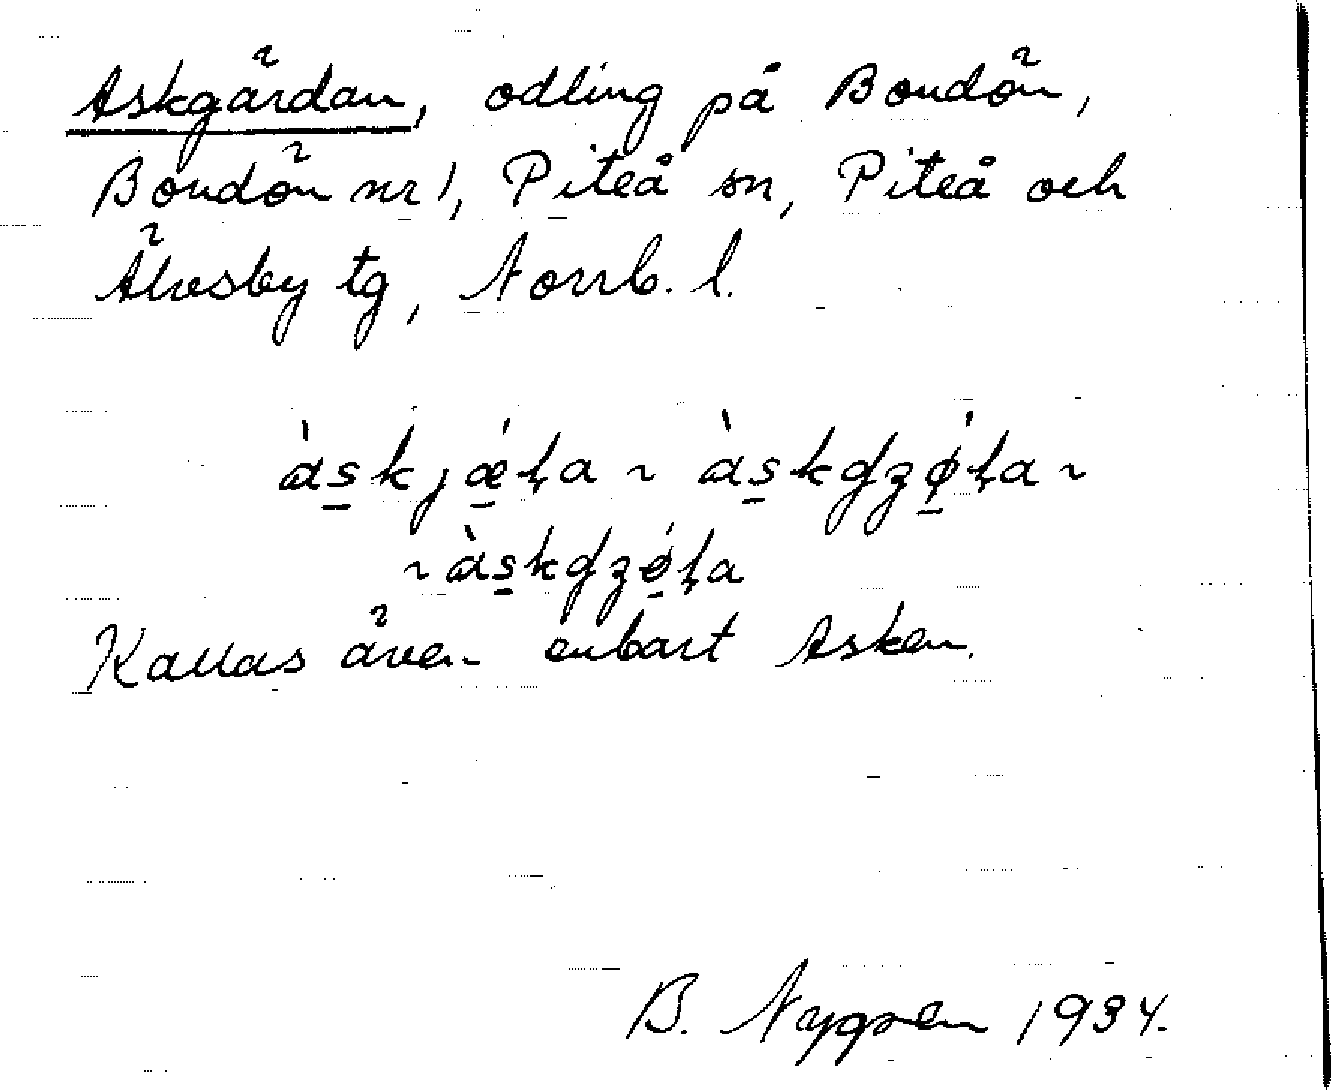 Askgärdan, odling på Bondön,
Bondön nr 1, Piteå sn, Piteå och
Älvsby tg, Norrb. l.
às̲kjǽ̲ḷa ~ às̲kʤǿ̲ḷa ~
~ às̲kʤǿ̲ḷa
Kallas även enbart Asken.
B. Nygren 1934.